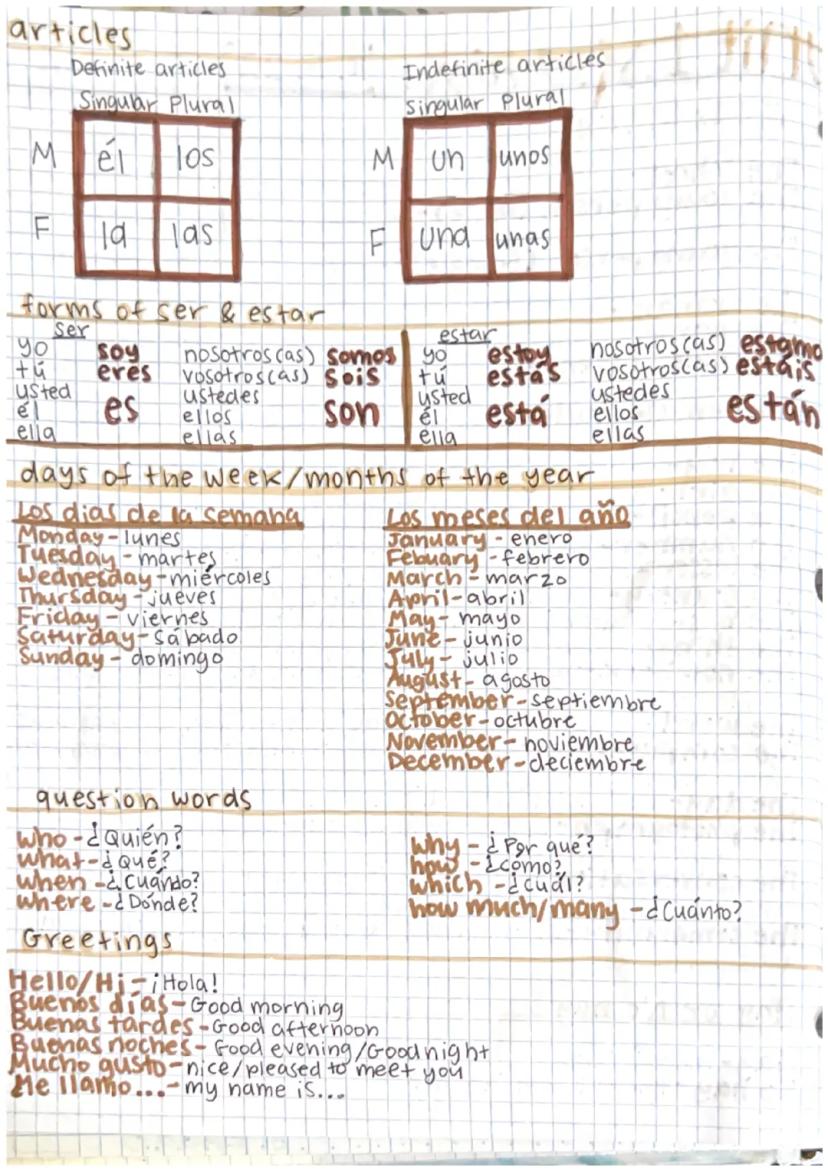 articles
Definite articles Indefinite articles
Singular Plural Singular Plural
M él los M un unos
F la las F una unas
forms of ser & estar
ser
yo soy
tú eres
usted
él es
ella
nosotros(as) somos
vosotros(as) sois
ustedes
ellos son
ellas
estar
yo estoy
tú estás
usted
él está
ella
nosotros(as) estamo
vosotros(as) estáis
ustedes
ellos están
ellas
days of the week/months of the year
Los dias de la semana
Monday - lunes
Tuesday - martes
Wednesday - miércoles
Thursday - jueves
Friday - viernes
Saturday - sábado
Sunday - domingo
Los meses del año
January - enero
Febuary - febrero
March - marzo
April - abril
May - mayo
June - junio
July - julio
August - agosto
September - septiembre
October - octubre
November - noviembre
December - deciembre
question words
who - ¿Quién?
what - ¿Qué?
when - ¿Cuándo?
where - ¿Dónde?
why - ¿Por qué?
how - ¿cómo?
which - ¿cuál?
how much/many - ¿Cuánto?
Greetings
Hello/Hi - ¡Hola!
Buenos días - Good morning
Buenas tardes - Good afternoon
Buenas noches - Good evening/Goodnight
Mucho gusto - nice/pleased to meet you
Me llamo... - my name is...